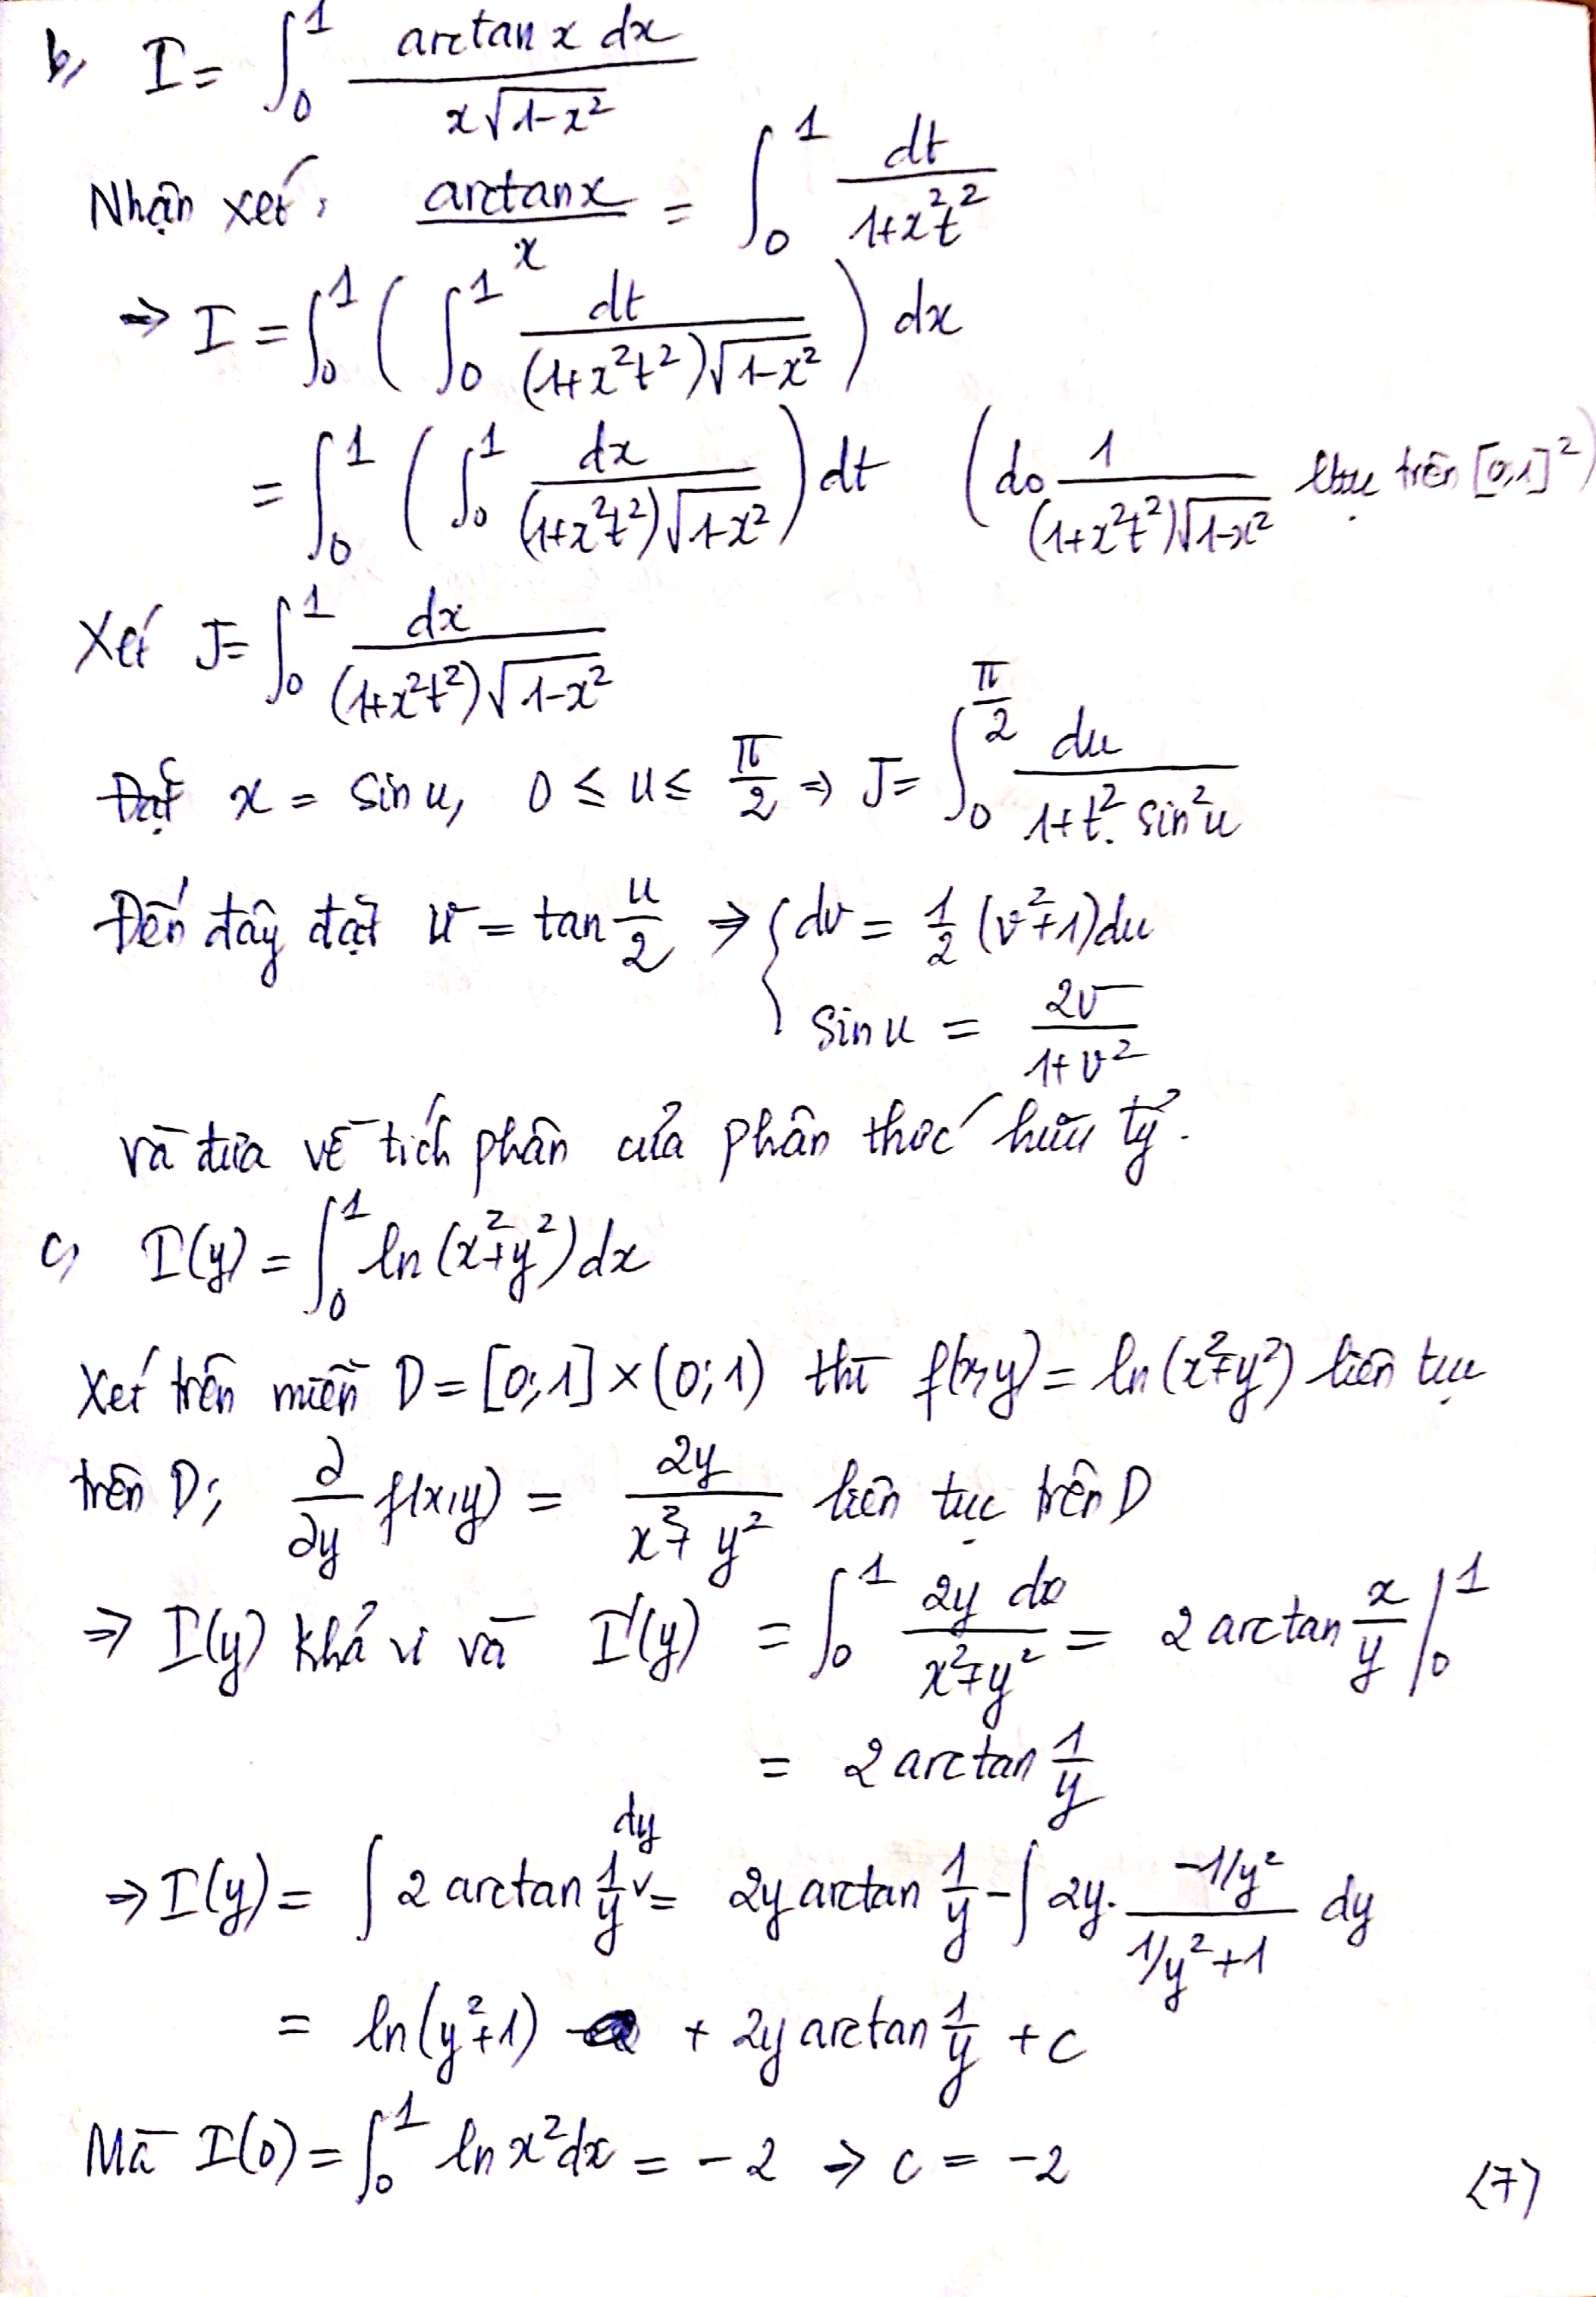 b, I = ∫₀¹ arctan x dx / x√(1-x²)
Nhận xét: arctan x / x = ∫₀¹ dt / (1+x²t²)
⇒ I = ∫₀¹ ( ∫₀¹ dt / (1+x²t²)√(1-x²) ) dx
= ∫₀¹ ( ∫₀¹ dx / (1+x²t²)√(1-x²) ) dt (do 1 / (1+x²t²)√(1-x²) trên [0,1]²)
Xét J = ∫₀¹ dx / (1+x²t²)√(1-x²)
Đặt x = sin u, 0 ≤ u ≤ π/2 ⇒ J = ∫₀^(π/2) du / (1+t².sin²u)
Đến đây đặt v = tan u/2 ⇒ { dv = 1/2 (v²+1)du
sin u = 2v / (1+v²)
và đưa về tích phân của phân thức hữu tỷ.
c, I(y) = ∫₀¹ ln(x²+y²)dx
Xét trên miền D = [0;1]×(0;1) thì f(x,y) = ln(x²+y²) liên tục
trên D; ∂/∂y f(x,y) = 2y / (x²+y²) liên tục trên D
⇒ I(y) khả vi và I'(y) = ∫₀¹ 2y dx / (x²+y²) = 2 arctan x/y |₀¹
= 2 arctan 1/y
⇒ I(y) = ∫ 2 arctan 1/y dy = 2y arctan 1/y - ∫ 2y. (-1/y²) / (1/y²+1) dy
= ln(y²+1) + 2y arctan 1/y + c
Mà I(0) = ∫₀¹ ln x² dx = -2 ⇒ c = -2
<7>